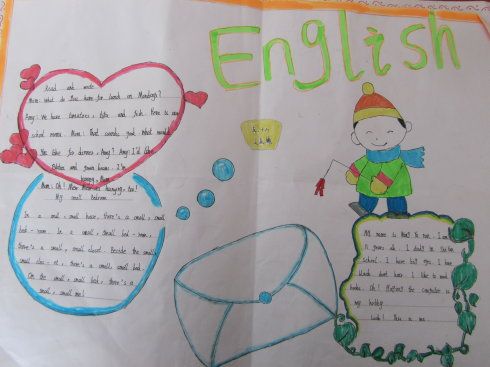 English
Read and write
Mum: What do they have for lunch on Mondays?
Amy: We have tomatoes, tofu and fish. Here is our
school menu. Mum: That sounds good. What would
you like for dinner, Amy? Amy: I'd like
potatoes and green beans. I'm
hungry, Mum.
Mum: Oh! I'm hungry, too!
My small bedroom
In a small, small house, there's a small, small
bed-room. In a small, small bed-room,
there's a small, small closet. Beside the small,
small clos-et, there's a small, small bed.
On the small, small bed, there's a
small, small me!
My name is I am
years old. I
school. I have big eyes, I have
black short hair. I like to read
books. Oh! the computer is
my hobby.
Look! This is me.